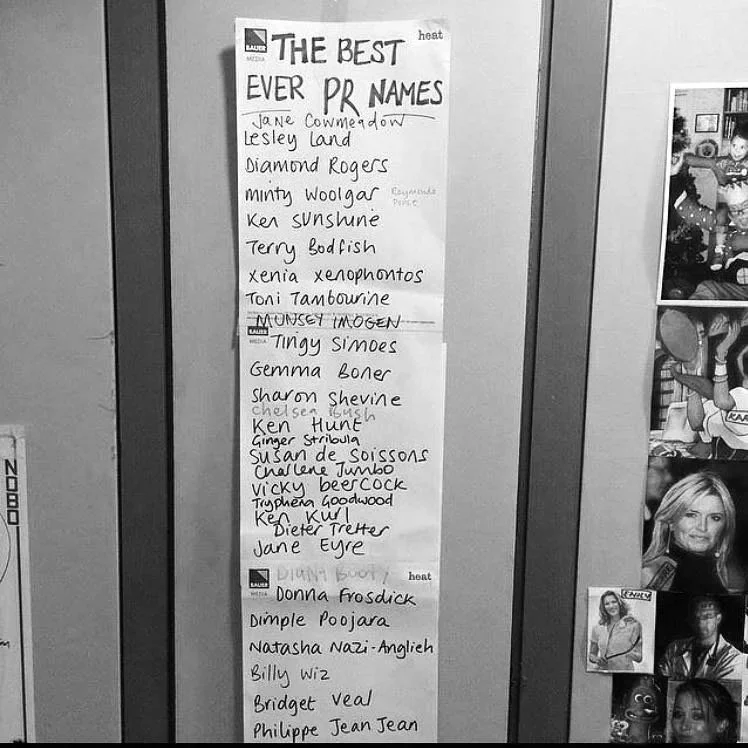 BAUER
MEDIA
heat
THE BEST
EVER PR NAMES
Jane Cowmeadow
Lesley Land
Diamond Rogers
Minty Woolgar
Ken Sunshine
Terry Bodfish
Xenia Xenophontos
Toni Tambourine
MUNSEY IMOGEN
BAUER
MEDIA
Tingy Simoes
Gemma Boner
Sharon Shevine
Chelsea Bush
Ken Hunt
Ginger Stribula
Susan de Soissons
Charlene Jumbo
Vicky beercock
Tryphena Goodwood
Ken Kurl
Dieter Tretter
Jane Eyre
Diana Booty
BAUER
MEDIA
heat
Donna Frosdick
Dimple Poojara
Natasha Nazi-Anglieh
Billy Wiz
Bridget Veal
Philippe Jean Jean
NOBO